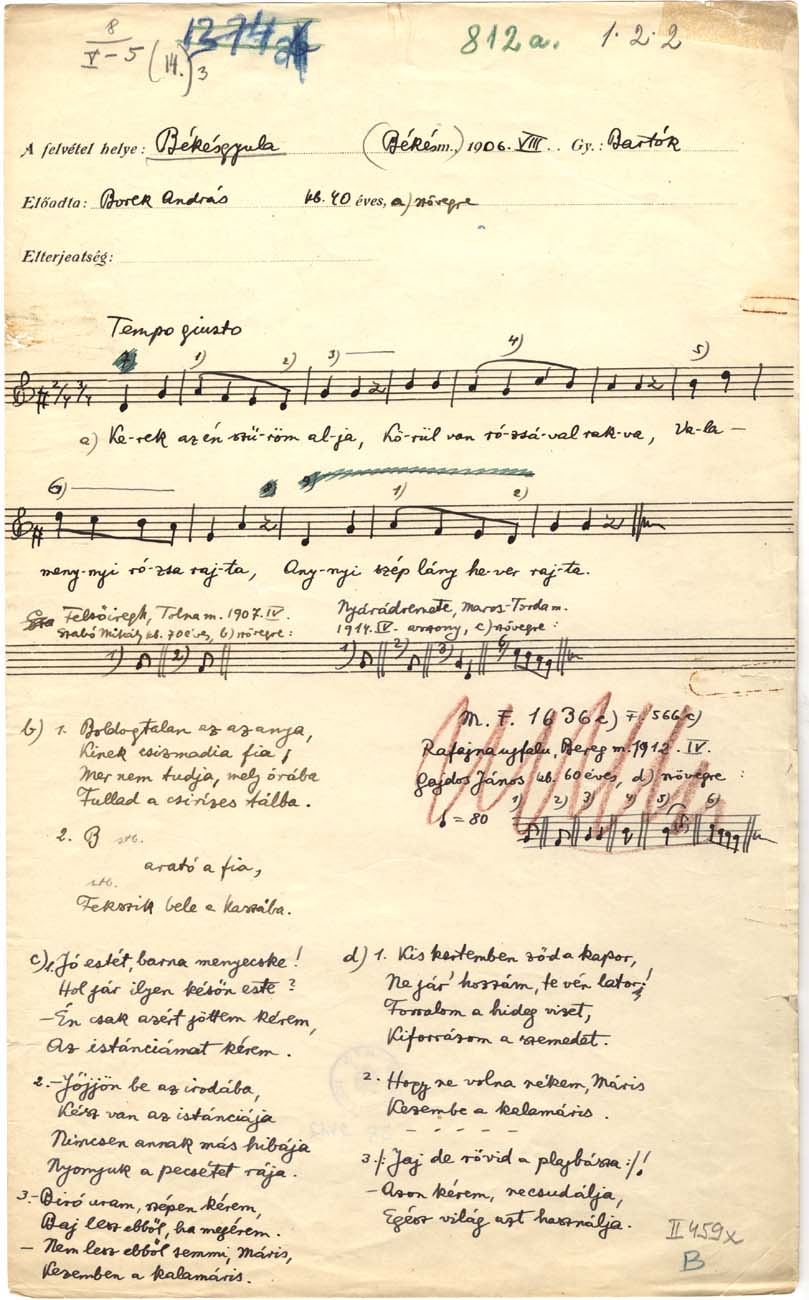 8
V-5 (14.)3
1274
812a. 1·2·2
A felvétel helye: Békésgyula (Békésm.) 1906. VIII. Gy.: Bartók
Előadta: Borek András kb. 40 éves, a) szövegre
Elterjedtség:
Tempo giusto
1) 2) 3) 4) 5)
2/4 3/4
a) Ke-rek az én szü-röm al-ja, Kö-rül van ró-zsá-val rak-va, Va-la-
6) 1) 2)
meny-nyi ró-zsa raj-ta, Any-nyi szép lány he-ver raj-ta.
Felsőiregh, Tolna m. 1907. IV.
Szabó Mihály kb. 70 éves, b) szövegre:
Nyárádremete, Maros-Torda m.
1914. IV. asszony, c) szövegre:
1) 2) 1) 2) 3) 6)
b) 1. Boldogtalan az az anya,
Kinek csizmadia fia;
Mer nem tudja, mely órába
Fullad a csirizes tálba.
2. B stb.
arató a fia,
stb.
Fekszik bele a kaszába.
M. F. 1636c) F. 566c)
Rafajnaujfalu, Bereg m. 1912. IV.
Gajdos János kb. 60 éves, d) szövegre:
1) 2) 3) 4) 5) 6)
= 80
c) 1. Jó estét, barna menyecske!
Hol jár ilyen késön este?
-Én csak azért jöttem kérem,
Az istánciámat kérem.
2.-Jöjjön be az irodába,
Kész van az istánciája
Nincsen annak más hibája
Nyomjuk a pecsétet rája.
3.-Biró uram, szépen kérem,
Baj lesz ebből, ha megérem.
- Nem lesz ebből semmi, Máris,
Kezemben a kalamáris.
d) 1. Kis kertemben zöd a kapor,
Ne jár' hozzám, te vén lator!
Forralom a hideg vizet,
Kiforrázom a szemedet.
2. Hogy ne volna nékem, Máris
Kezembe a kalamáris.
- - - - -
3. /: Jaj de rövid a plajbásza :/!
- Azon kérem, necsudálja,
Egész világ azt használja.
II 459x
B